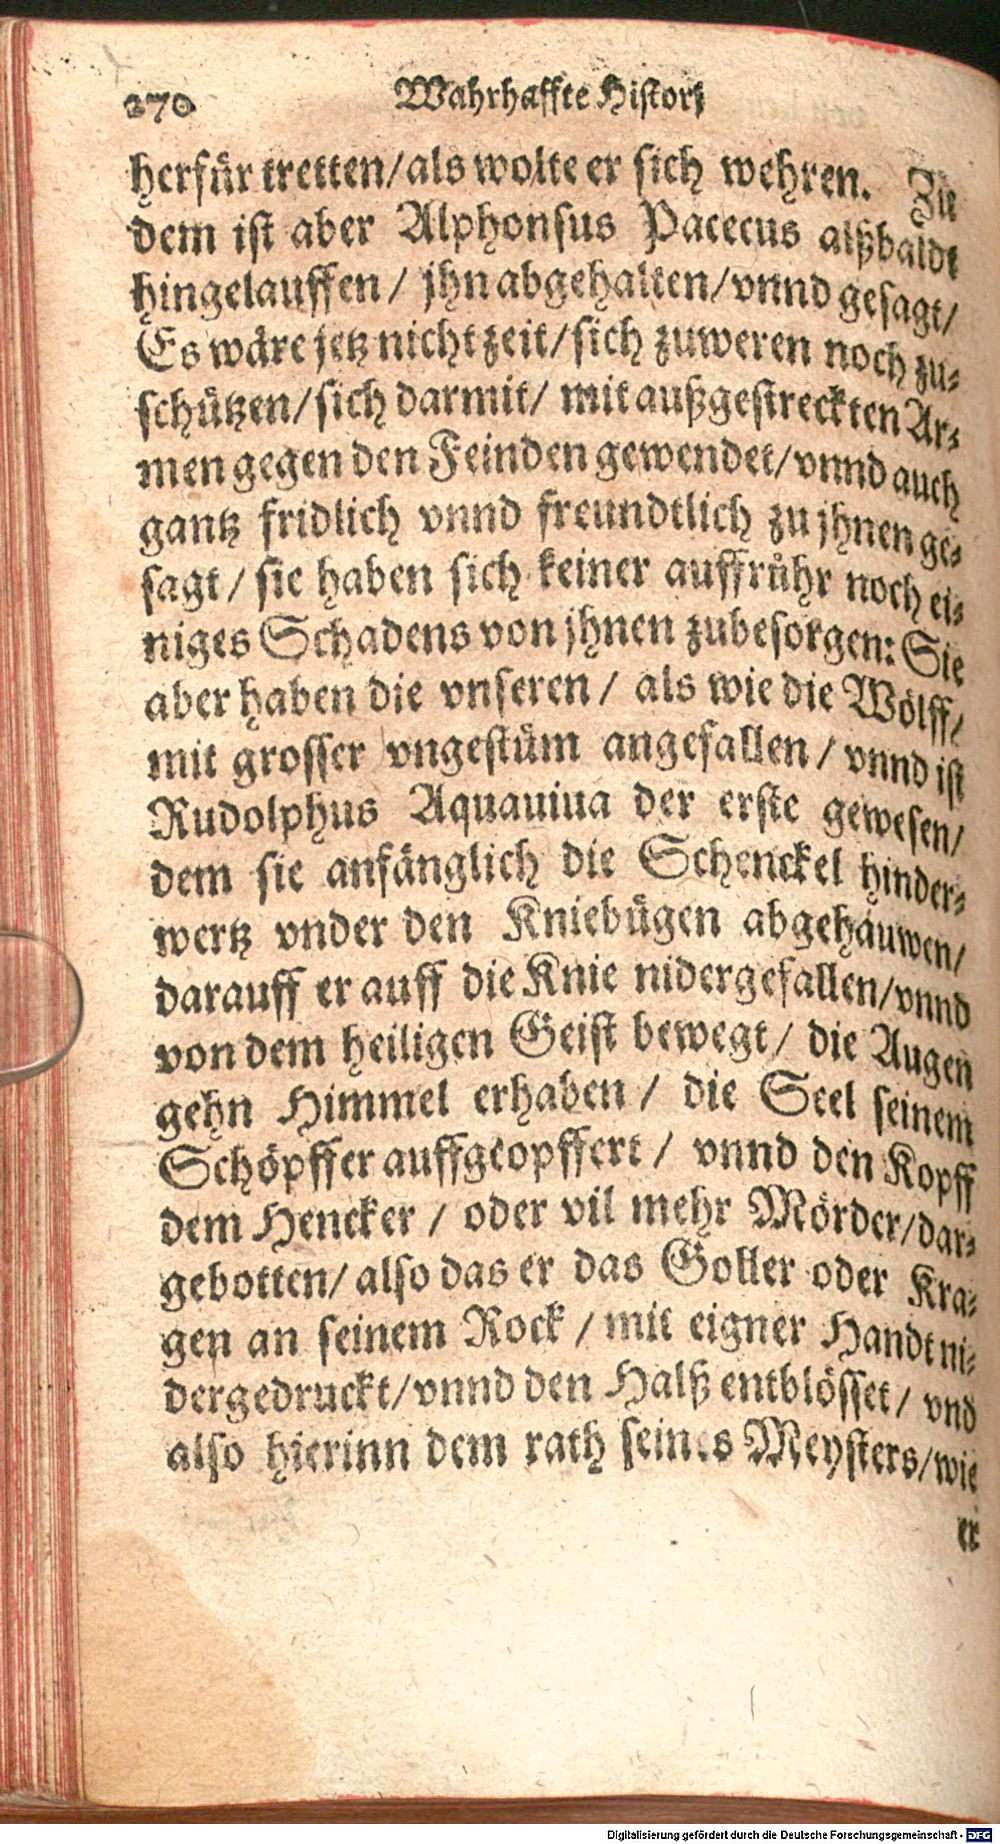 270 Wahrhaffte Histori
herfür tretten/ als wolte er sich wehren. Zu
dem ist aber Alphonsus Pacecus alßbaldt
hingelauffen/ jhn abgehalten/ vnnd gesagt/
Es wäre jetz nicht zeit/ sich zuweren noch zu-
schützen/ sich darmit/ mit außgestreckten Ar-
men gegen den Feinden gewendet/ vnnd auch
gantz fridlich vnnd freundtlich zu jhnen ge-
sagt/ sie haben sich keiner auffrůhr noch ei-
niges Schadens von jhnen zubesorgen: Sie
aber haben die vnseren/ als wie die Wölff/
mit grosser vngestüm angefallen/ vnnd ist
Rudolphus Aquauiua der erste gewesen/
dem sie anfänglich die Schenckel hinder-
wertz vnder den Kniebügen abgehauwen/
darauff er auff die Knie nidergefallen/ vnnd
von dem heiligen Geist bewegt/ die Augen
gehn Himmel erhaben/ die Seel seinem
Schöpffer auffgeopffert/ vnnd den Kopff
dem Hencker/ oder vil mehr Mörder/ dar-
gebotten/ also das er das Goller oder Kra-
gen an seinem Rock/ mit eigner Handt ni-
dergedruckt/ vnnd den Halß entblösset/ vnd
also hierinn dem rath seines Meysters/ wie
er
Digitalisierung gefördert durch die Deutsche Forschungsgemeinschaft - DFG